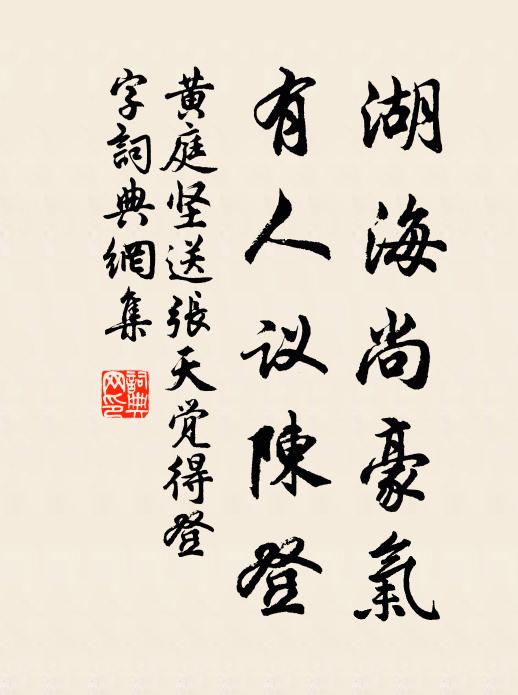 湖海尚豪氣
有人议陳登
黄庭坚送張天觉得登
字詞典網集
詞典
网印